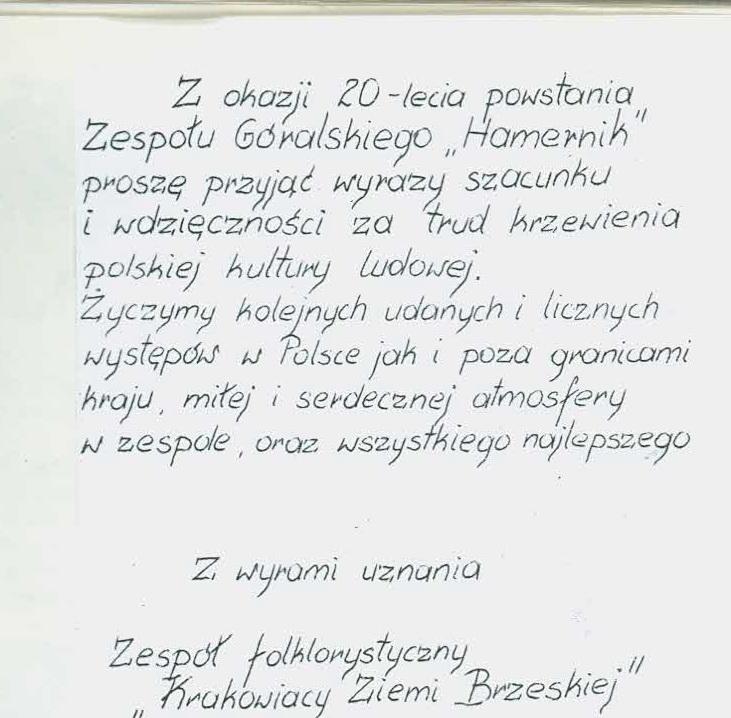 Z okazji 20-lecia powstania
Zespołu Góralskiego „Hamernik"
proszę przyjąć wyrazy szacunku
i wdzięczności za trud krzewienia
polskiej kultury ludowej.
Życzymy kolejnych udanych i licznych
występów w Polsce jak i poza granicami
kraju, miłej i serdecznej atmosfery
w zespole, oraz wszystkiego najlepszego
Z wyrami uznania
Zespół folklorystyczny
„Krakowiacy Ziemi Brzeskiej"